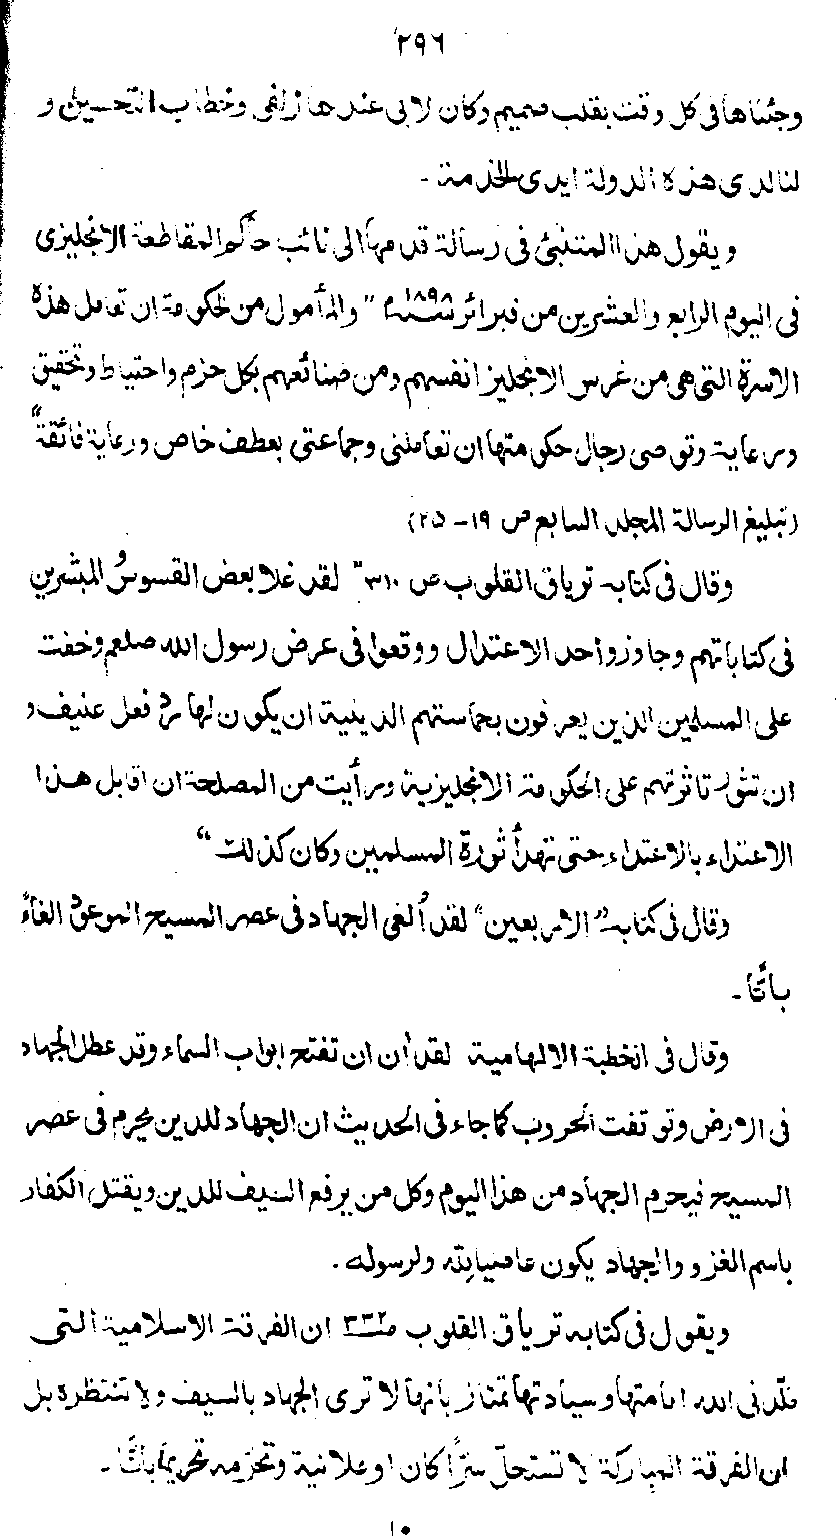 ٢٩٦
وجئناها فى كل وقت بقلب صميم وكان لابى عندها زلفى وخطاب التحسين و
لنا لدى هذه الدولة ايدى الخدمة ـ
ويقول هذا المتنبئ فى رسالة قدمها الى نائب حاكم المقاطعة الانجليزى
فى اليوم الرابع والعشرين من فبرائر سنة ١٨٩٨م "والمأمول من الحكومة ان تعامل هذه
الاسرة التى هى من غرس الانجليز انفسهم ومن صنائعهم بكل حزم واحتياط وتحقيق
ورعاية وتوصى رجال حكومتها ان تعاملنى وجماعتى بعطف خاص ورعاية فائقة"
(تبليغ الرسالة المجلد السابع ص ١٩-٢٥)
وقال فى كتابه ترياق القلوب ص ٣١٠ "لقد غلا بعض القسوس والمبشرين
فى كتاباتهم وجاوزوا حد الاعتدال ووقعوا فى عرض رسول الله صلعم وخفت
على المسلمين الذين يعرفون بحماستهم الدينية ان يكون لها رد فعل عنيف و
ان تثور ثائرتهم على الحكومة الانجليزية ورأيت من المصلحة ان اقابل هذا
الاعتداء بالاعتداء حتى تهدأ ثورة المسلمين وكان كذلك"
وقال فى كتابه "الاربعين" لقد ألغى الجهاد فى عصر المسيح الموعود الغاءً
باتًا ـ
وقال فى الخطبة الالهامية لقد أن ان تفتح ابواب السماء وقد عطل الجهاد
فى الارض وتوقفت الحروب كما جاء فى الحديث ان الجهاد للدين يحرم فى عصر
المسيح فيحرم الجهاد من هذا اليوم وكل من يرفع السيف للدين ويقتل الكفار
باسم الغزو والجهاد يكون عاصيا لله ولرسوله .
ويقول فى كتابه ترياق القلوب ص ٣٣٢ ان الفرقة الاسلامية التى
قلّدنى الله امامتها وسيادتها تمتاز بانها لا ترى الجهاد بالسيف ولا تنتظره بل
ان الفرقة المباركة لا تستحلّ سرًّا كان او علانية وتحرّمه تحريمًا باتًّا ـ
١٠